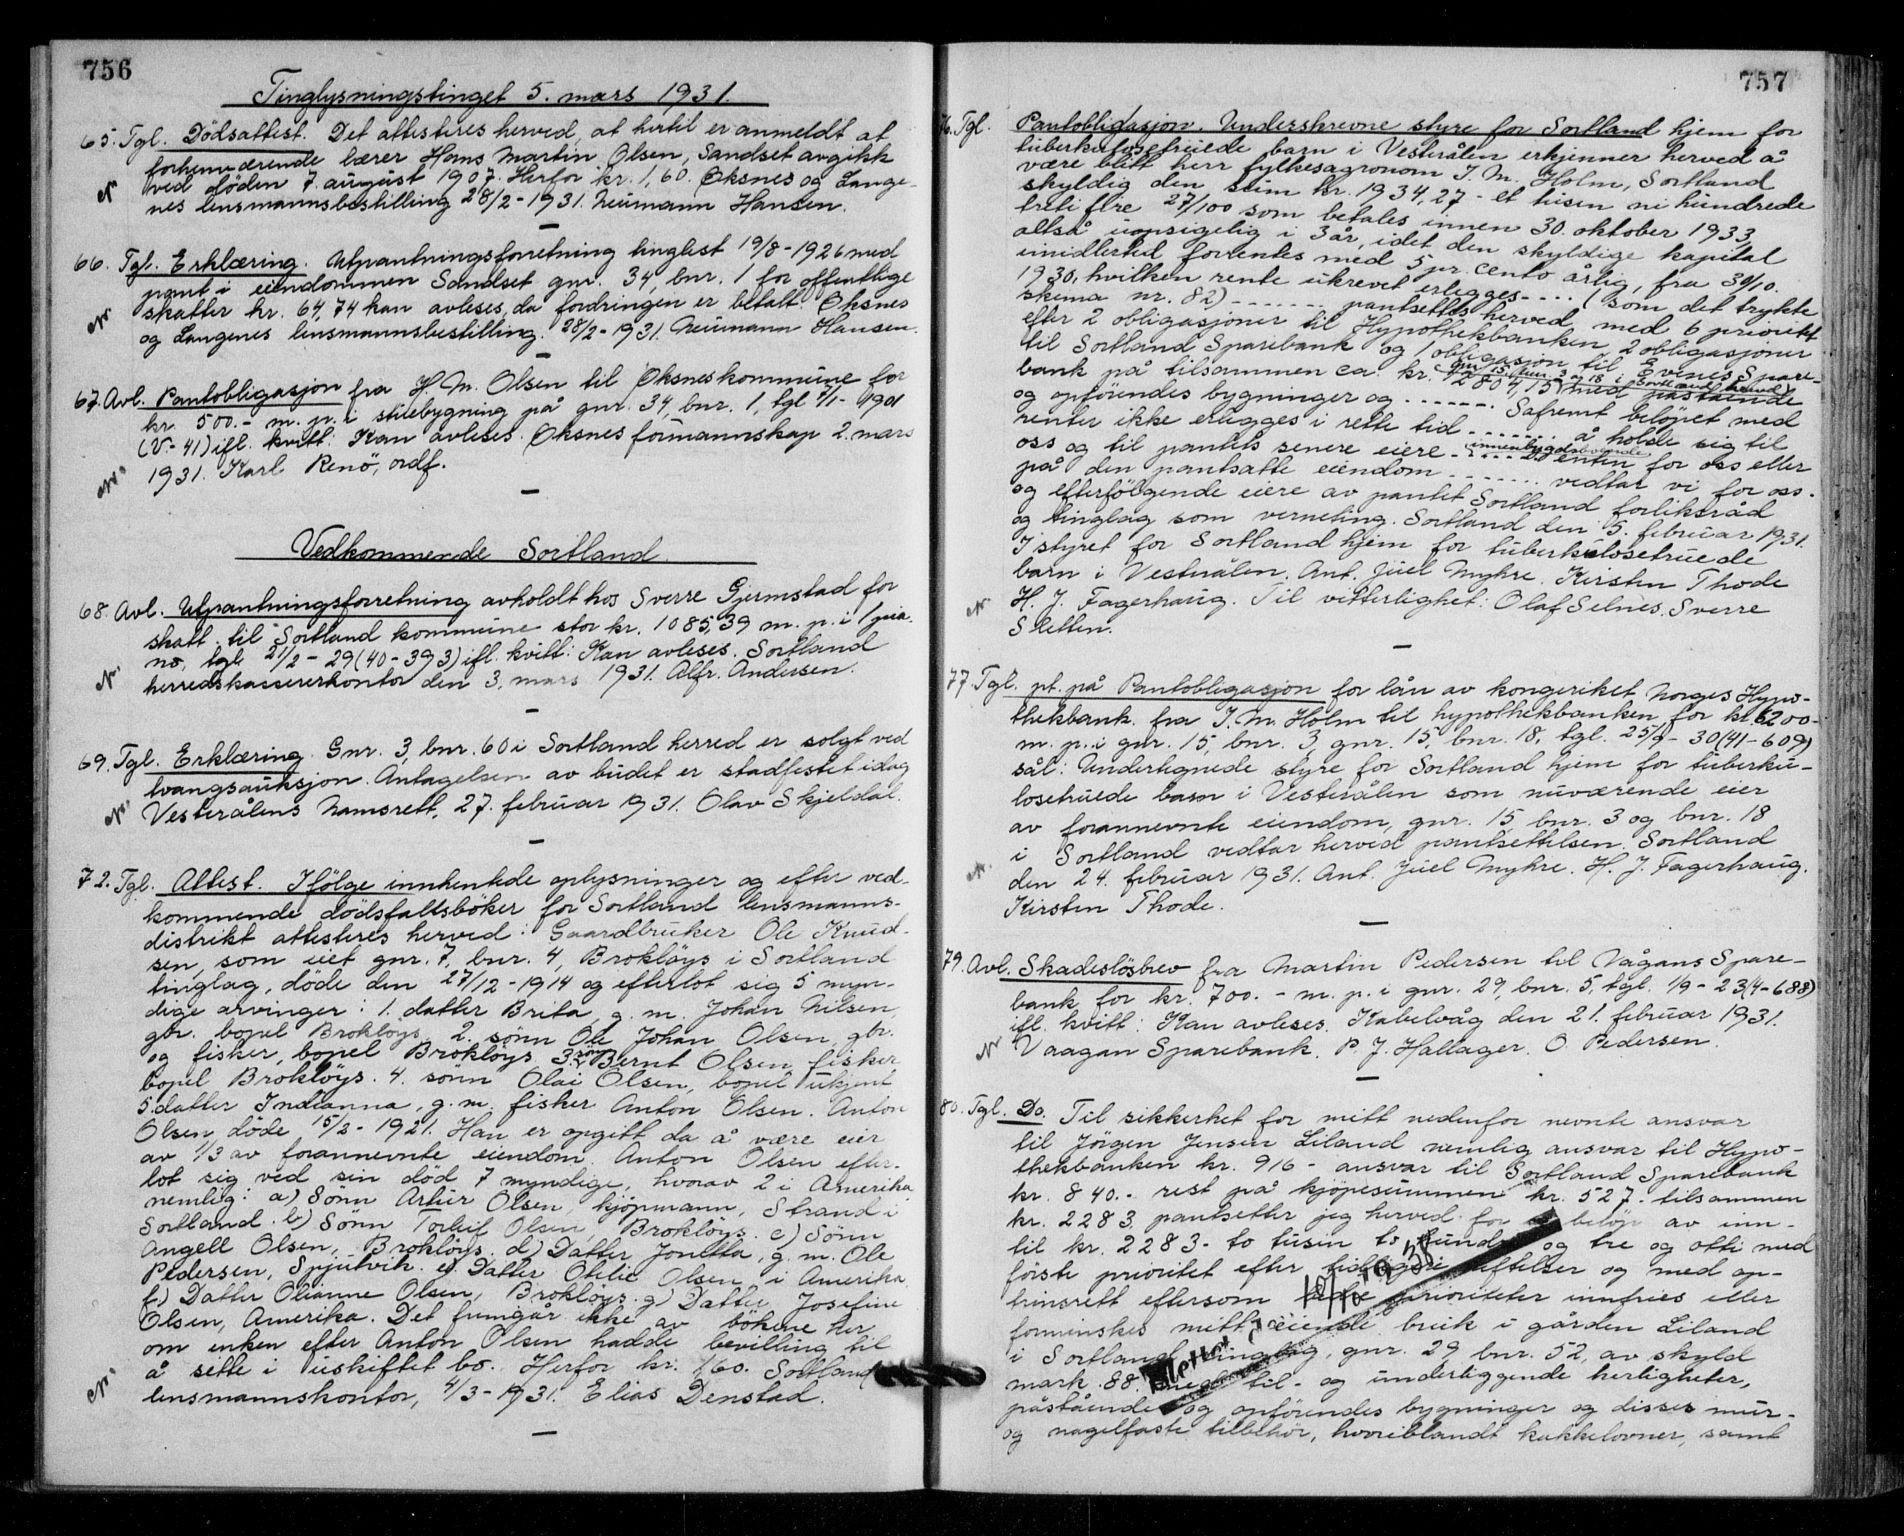 756
Tinglysningstinget 5. mars 1931.
65. Tgl. Dödsattest. Det attesteres herved, at hertil er anmeldt at
forhenværende lærer Hans Martin Olsen, Sandset avgikk
ved döden 7. august 1907. Herfor kr. 1,60. Øksnes og Lange-
nes lensmannsbestilling 28/2-1931. Neumann Hansen.
66. Tgl. Erklæring. Utpantningsforretning tinglest 19/8-1926 med
pant i eiendommen Sandset gnr. 34, bnr. 1 for offentlige
skatter kr. 64,74 kan avleses, da fordringen er betalt. Øksnes
og Langenes lensmannsbestilling. 28/2-1931. Neumann Hansen.
67. Avl. Pantobligasjon fra H. M. Olsen til Øksneskommune for
kr. 500.- m. p. i stuebygning på gnr. 34, bnr. 1, tgl. 1/1-1901
(V-41) ifl. kvitt: Kan avleses. Øksnes formannskap 2. mars
1931. Karl Renö, ordf.
Vedkommende Sortland
68. Avl. Utpantningsforretning avholdt hos Sverre Gjermstad for
skatt til Sortland kommune stor kr. 1085,39 m. p. i 1 pia-
no, tgl. 21/2-29 (40-393) ifl. kvitt: Kan avleses. Sortland
herredskassererkontor den 3. mars 1931. Alfr. Andersen.
69. Tgl. Erklæring. Gnr. 3, bnr. 60 i Sortland herred er solgt ved
tvangsauksjon. Antagelsen av budet er stadfestet idag
Vesterålens Namsrett, 27. februar 1931. Olav Skjeldal.
72. Tgl. Attest. Ifölge innhentede oplysninger og efter ved-
kommende dödsfallsböker for Sortland lensmanns-
distrikt attesteres herved: Gaardbruker Ole Knud-
sen, som eiet gnr. 7, bnr. 4, Broklöys i Sortland
tinglag, döde den 27/12-1914 og efterlot sig 5 myn-
dige arvinger: 1. datter Brita, g. m. Johan Nilsen,
gbr. bopel Broklöys, 2. sönn Ole Johan Olsen, gbr.
og fisker, bopel Broklöys 3. Bernt Olsen, fisker
bopel Broklöys. 4. sönn Olai Olsen, bopel ukjent
5. datter Indianna, g. m. fisker Anton Olsen. Anton
Olsen döde 15/2-1921. Han er opgitt da å være eier
av 1/3 av forannevnte eiendom. Anton Olsen efter-
lot sig ved sin död 7 myndige, hvorav 2 i Amerika
nemlig: a) Sönn Artur Olsen, kjöpmann, Strand i
Sortland. b) Sönn Torleif Olsen, Broklöys. c) Sönn
Angell Olsen, Broklöys. d) Datter Jonetta, g. m. Ole
Pedersen, Spjutvik. e) Datter Otelie Olsen, i Amerika,
f) Datter Olianne Olsen, Broklöys. g) Datter Josefine
Olsen, Amerika. Det fremgår ikke av bökene her
om enken efter Anton Olsen hadde bevilling til
å sitte i uskiftet bo. Herfor kr. 1,60. Sortland
lensmannskontor, 4/3-1931. Elias Denstad.
757
76. Tgl. Pantobligasjon. Underskrevne styre for Sortland hjem for
tuberkulosetruede barn i Vesterålen erkjenner herved å
være blitt herr fylkesagronom J. M. Holm, Sortland
skyldig den sum kr. 1934,27 - et tusen ni hundrede
trti fire 27/100 som betales innen 30. oktober 1933,
altså uopsigelig i 3 år, idet den skyldige kapital
imidlertid forrentes med 5 pr. cento årlig, fra 30/10.
1930, hvilken rente ukrevet erlegges .... (som det trykte
skema nr. 82) ....... pantsettes herved med 6 prioritet
efter 2 obligasjoner til Hypothekbanken 2 obligasjoner
til Sortland Sparebank og 1 obligasjon til Evenes Spare-
bank på tilsammen ca. kr. 12804,15 med påstående
gnr. 15, bnr. 3 og 18 i Sortland herred
og opförendes bygninger og ...... Såfremt belöpet med
renter ikke erlegges i rette tid ....... å holde sig til
oss og til pantets senere eiere ...... enten for oss eller
innenbygdsboende
på den pantsatte eiendom ...... vedtar vi for oss
og efterfölgende eiere av pantet Sortland forliksråd
og tinglag som verneting. Sortland den 5. februar 1931.
I styret for Sortland hjem for tuberkulosetruede
barn i Vesterålen. Ant. Juel Myhre. Kirsten Thode
H. J. Fagerhaug. Til vitterlighet: Olaf Selnes. Sverre
Sletten.
77. Tgl. pt. på Pantobligasjon for lån av kongeriket Norges Hypo-
thekbank. fra J. M. Holm til hypothekbanken for kr. 6200-
m. p. i gnr. 15, bnr. 3, gnr. 15, bnr. 18, tgl. 25/9-30 (41-609)
sål: Undertegnede styre for Sortland hjem for tuberku-
losetruede barn i Vesterålen som nuværende eier
av forannevnte eiendom, gnr. 15 bnr. 3 og bnr. 18
i Sortland vedtar herved pantsettelsen. Sortland
den 24. februar 1931. Ant. Juel Myhre. H. J. Fagerhaug.
Kirsten Thode.
79. Avl. Skadeslösbrev fra Martin Pedersen til Vågans Spare-
bank for kr. 700.- m. p. i gnr. 29, bnr. 5, tgl. 1/9-23 (4-688)
ifl. kvitt: Kan avleses. Kabelvåg den 21. februar 1931.
Vaagan Sparebank. P. J. Hallager. O. Pedersen.
80. Tgl. Do. Til sikkerhet for mitt nedenfor nevnte ansvar
til Jörgen Jensen Liland nemlig ansvar til Hypo-
thekbanken kr. 916- ansvar til Sortland Sparebank
kr. 840.- rest på kjöpesummen kr. 527- tilsammen
kr. 2283. pantsetter jeg herved for belöp av inn-
til kr. 2283- to tusin to hundre og tre og otti med
förste prioritet efter tidligere heftelser og med op-
trinsrett eftersom prioriteter innfries eller
forminskes mitt eiende bruk i gården Liland
i Sortland tinglag, gnr. 29 bnr. 52, av skyld
mark .88. med til- og underliggende herligheter,
påstående og opförendes bygninger og disses mur-
og nagelfaste tilbehör, hvoriblandt kakkelovner, samt